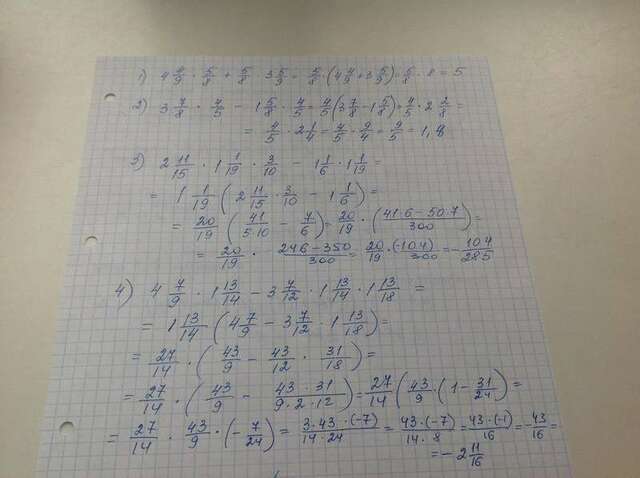 1) 4 4/9 · 5/8 + 5/8 · 3 5/9 = 5/8 · (4 4/9 + 3 5/9) = 5/8 · 8 = 5
2) 3 7/8 · 4/5 - 1 5/8 · 4/5 = 4/5 (3 7/8 - 1 5/8) = 4/5 · 2 2/8 =
= 4/5 · 2 1/4 = 4/5 · 9/4 = 9/5 = 1,8
3) 2 11/15 · 1 1/19 · 3/10 - 1 1/6 · 1 1/19 =
= 1 1/19 (2 11/15 · 3/10 - 1 1/6) =
= 20/19 (41/5·10 - 7/6) = 20/19 · (41·6-50·7/300) =
= 20/19 · 246-350/300 = 20/19 · (-104)/300 = -104/285
4) 4 7/9 · 1 13/14 - 3 7/12 · 1 13/14 · 1 13/18 =
= 1 13/14 (4 7/9 - 3 7/12 · 1 13/18) =
= 27/14 · (43/9 - 43/12 · 31/18) =
= 27/14 · (43/9 - 43·31/9·2·12) = 27/14 (43/9 · (1 - 31/24) =
= 27/14 · 43/9 · (-7/24) = 3·43·(-7)/14·24 = 43·(-7)/14·8 = 43·(-1)/16 = -43/16 =
= -2 11/16